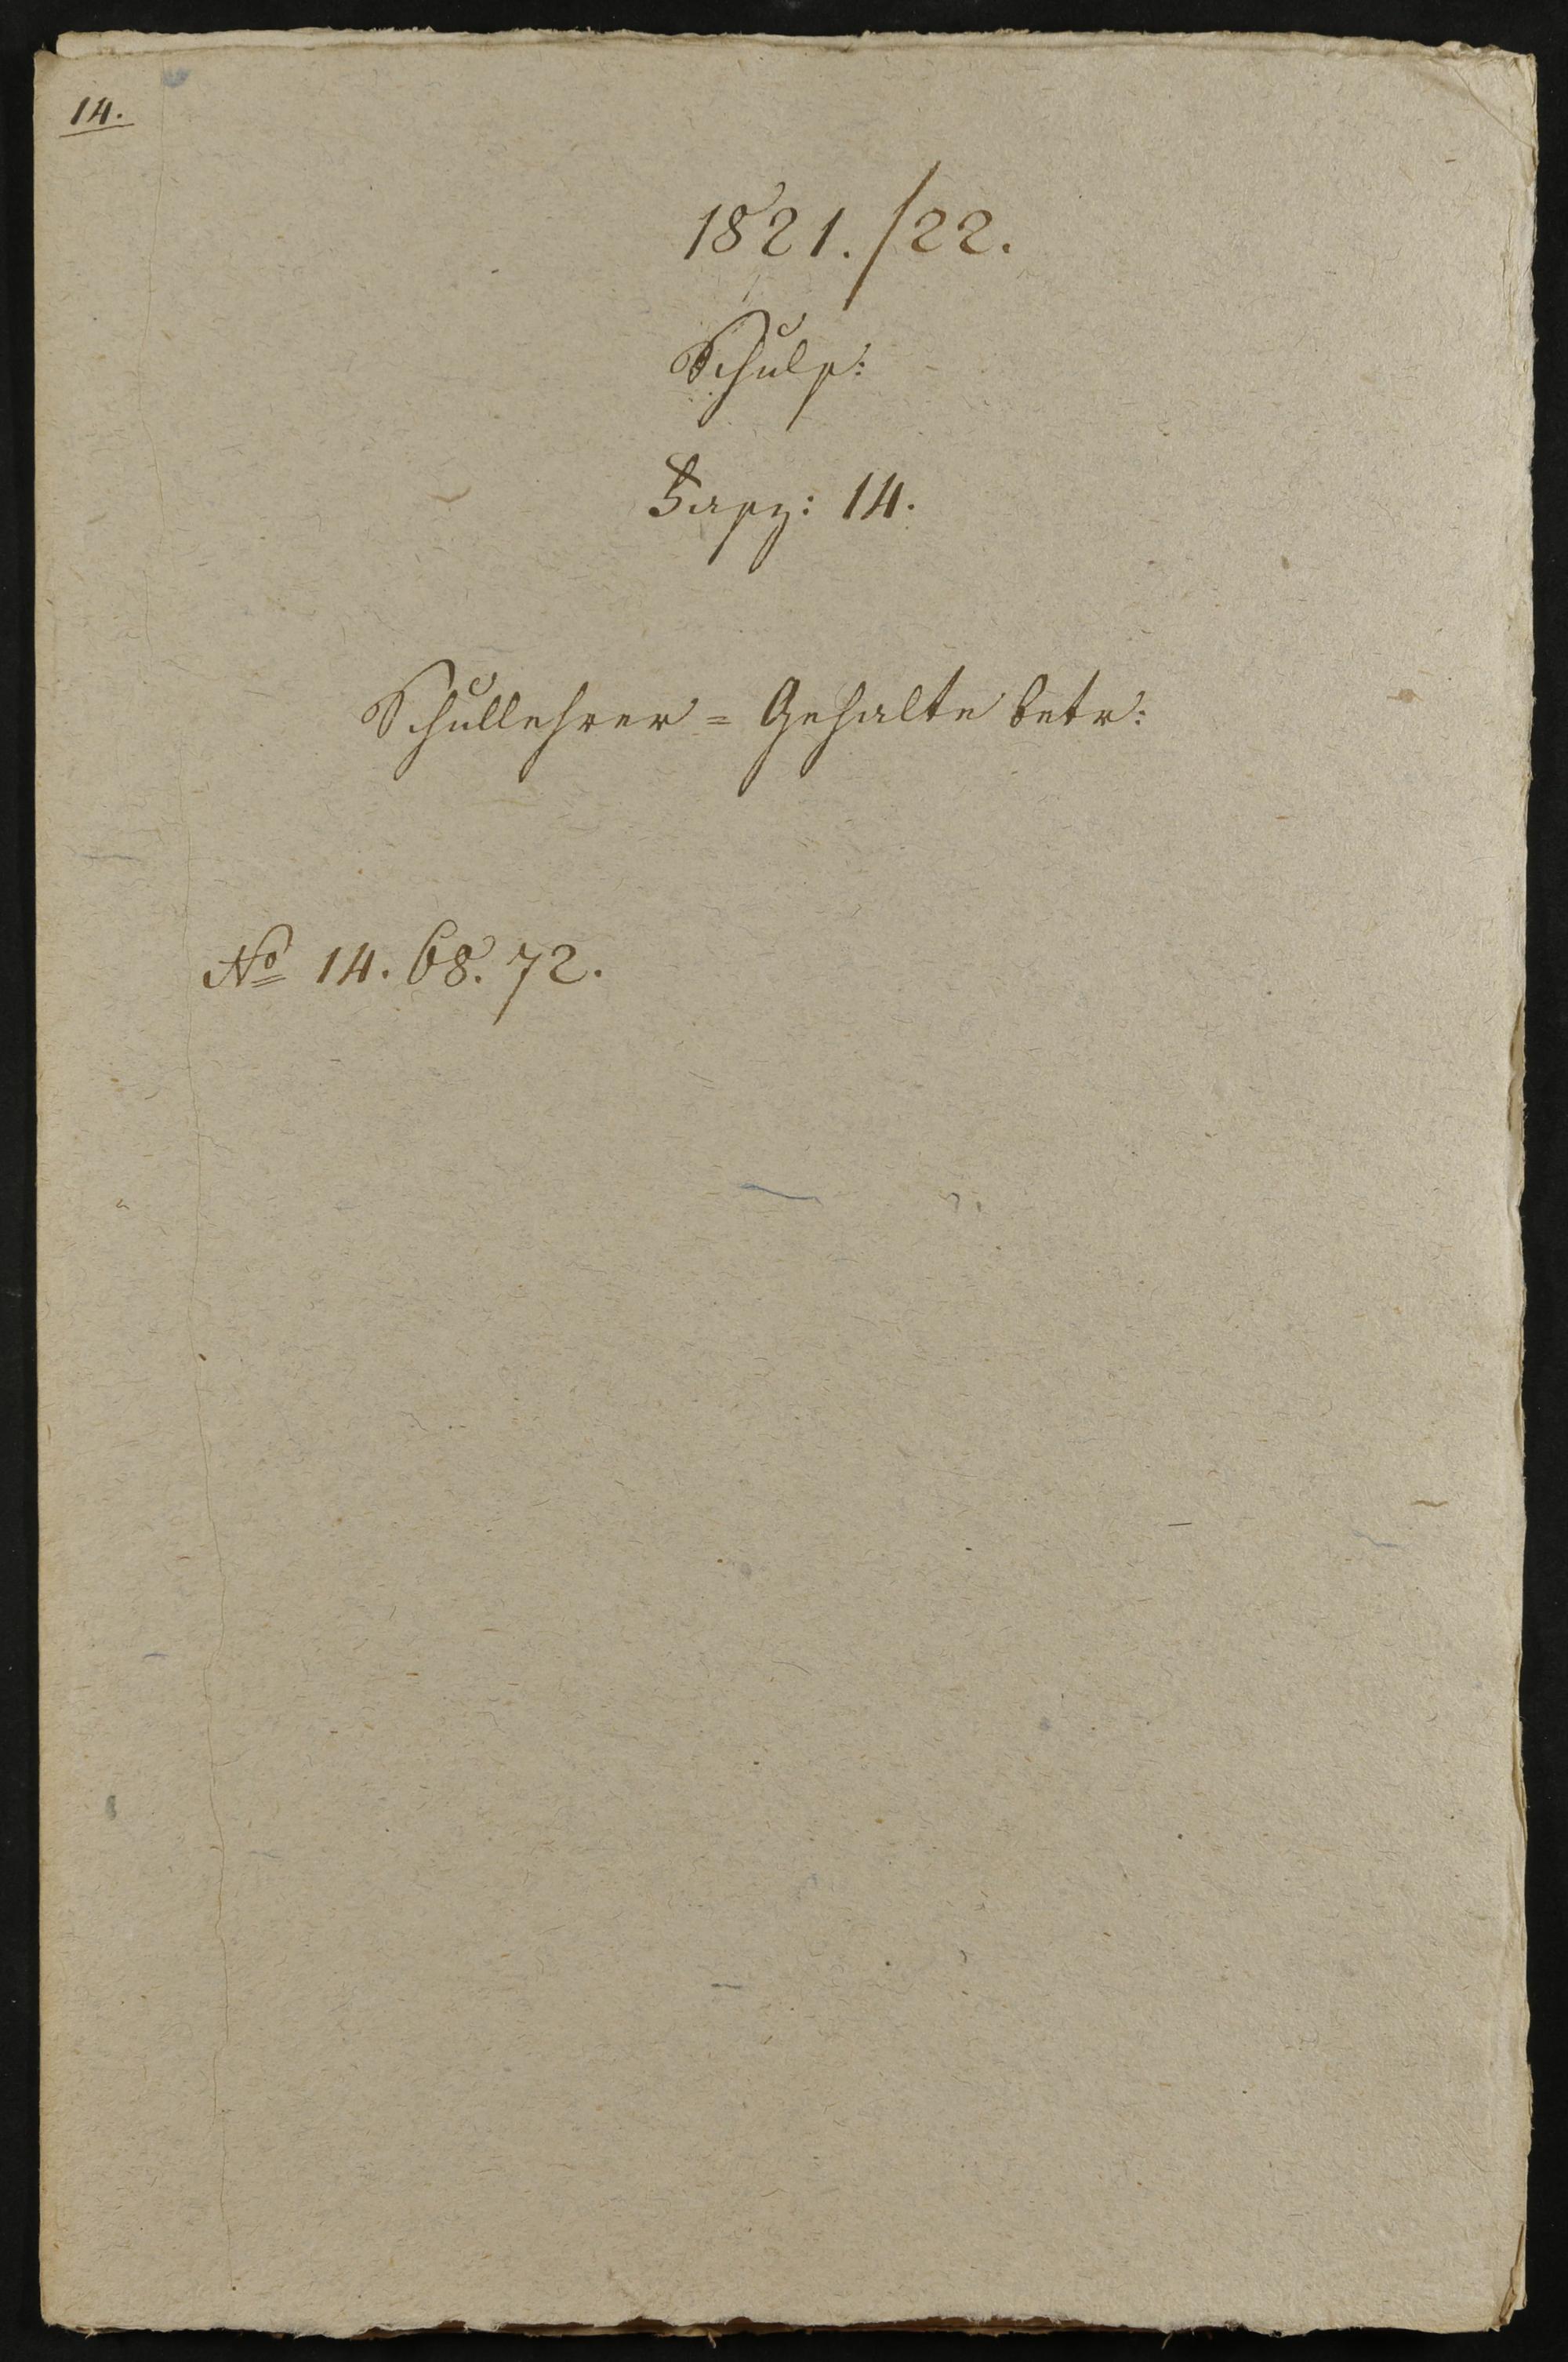 14.
1821./22.
Schuls:
Fasz: 14.
Schullehrer = Gehalte betr:
No 14. 68. 72.